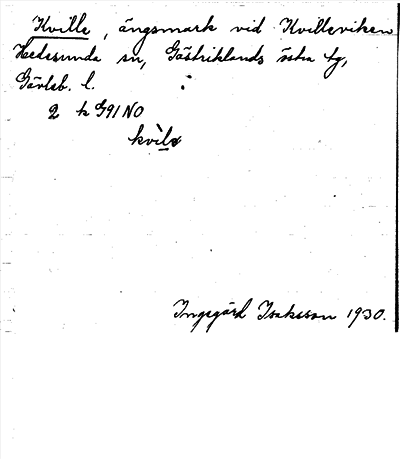 Kville, ängsmark vid Kvilleviken
Hedesunda sn, Gästriklands östra tg,
Gävleb. l.
2 k G91 NO
Ingegärd Isaksson 1930.